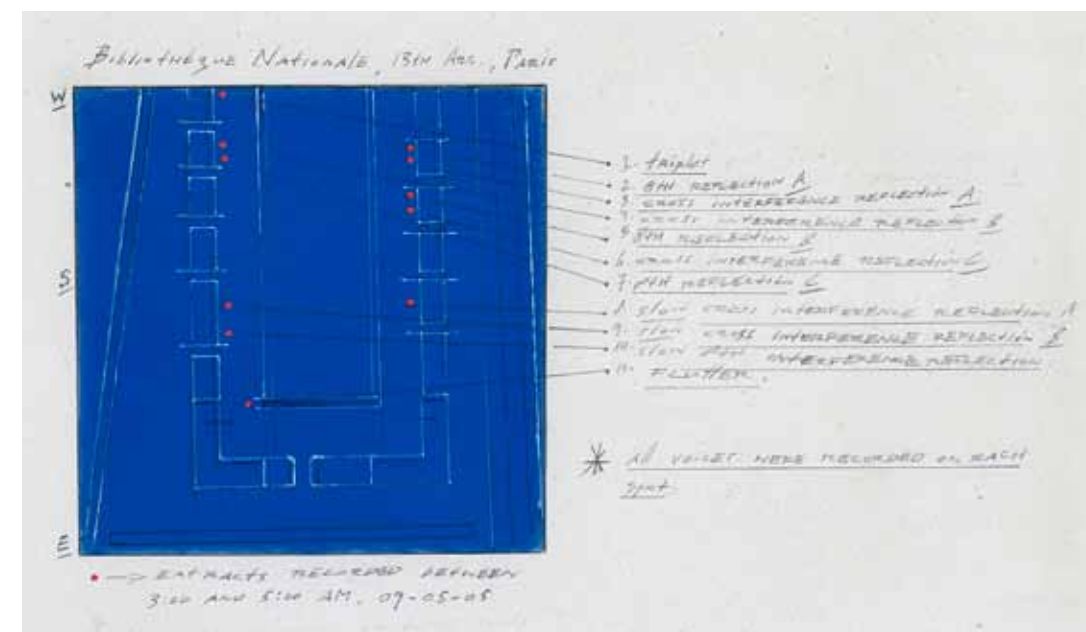 Bibliothèque Nationale, 13th Arr., Paris
W
S
E
1. triplet
2. 8th REFLECTION A
3. CROSS INTERFERENCE REFLECTION A
4. CROSS INTERFERENCE REFLECTION B
5. 8th REFLECTION B
6. CROSS INTERFERENCE REFLECTION C
7. 8th REFLECTION C
8. Slow CROSS INTERFERENCE REFLECTION A
9. Slow CROSS INTERFERENCE REFLECTION B
10. Slow INTERFERENCE REFLECTION
11. FLUTTER.
* All VOICES WERE RECORDED ON EACH
Spot
• → EXTRACTS RECORDED BETWEEN
3:00 AND 5:00 AM. 09-05-05